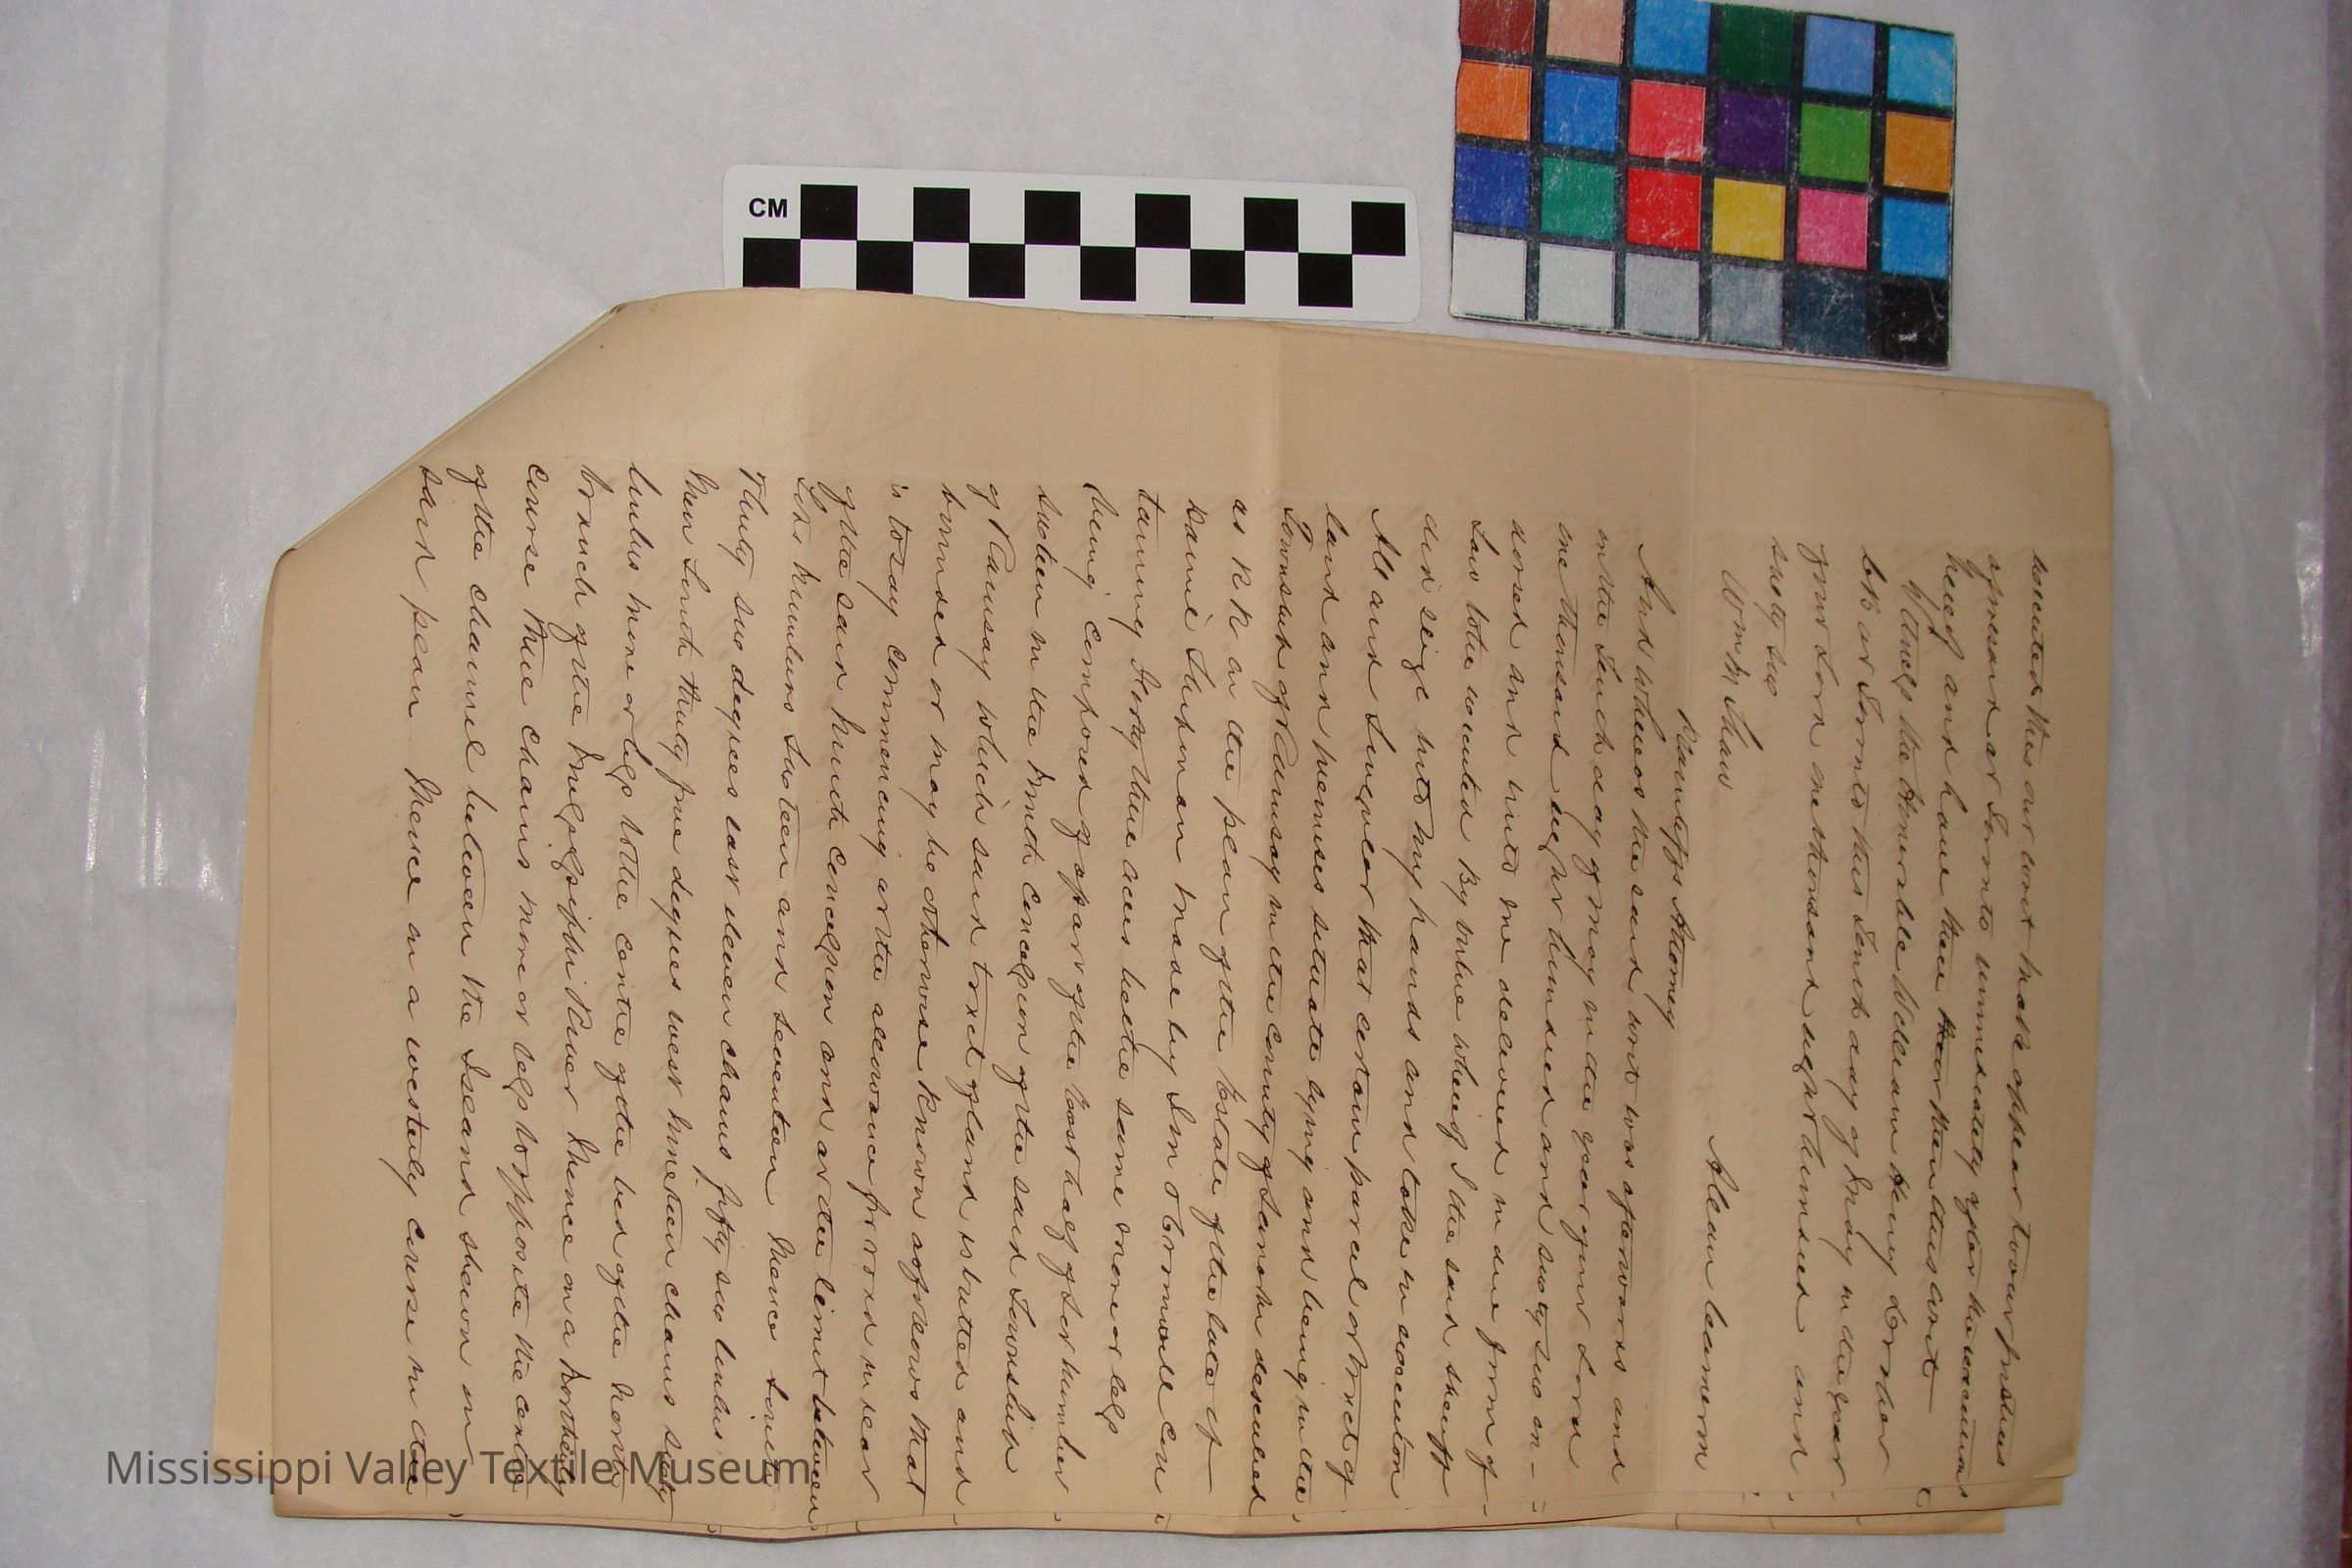 CM
executed this our writ make appear to our Justices
aforesaid at Toronto immediately after the execution
hereof and have then there this writ
Witness the Honorable William Henry Draper
C B at Toronto this Tenth day of May in the year
of our Lord one thousand eight hundred and
sixty six
Wm M Shaw
Allan Cameron
Plaintiffs Attorney
And whereas the said writ was afterwards and
on the Tenth day of May in the year of our Lord
one thousand eight hundred and sixty six en-
dorsed and unto me delivered in due form of
Law to be executed By virtue whereof I the said Sheriff
did seize into my hands and take in execution
All and Singular that certain parcel or tract of
land and premises situate lying and being in the
Township of Ramsay in the County of Lanark described
as on the plan of the Estate of the late
made by Cromwell
taining Forty three acres be the same more or less
being composed of a part of the East half of Lot number
sixteen in the Ninth Concession of the said Township
of Ramsay which said tract of land is butted and
bounded or may be otherwise known as follows that
is to say commencing at the allowance for road in rear
of the said Ninth Concession and at the limit between
Lots numbers sixteen and seventeen Thence South
Thirty six degrees east eleven chains fifty six links
then South thirty five degrees west nineteen chains sixty
links more or less to the centre of the bed of the North
branch of the Mississippi River Thence on a Northerly
course three chains more or less to opposite the centre
of the channel between the Island shewn on
said plan Thence on a westerly course in the
Mississippi Valley Textile Museum